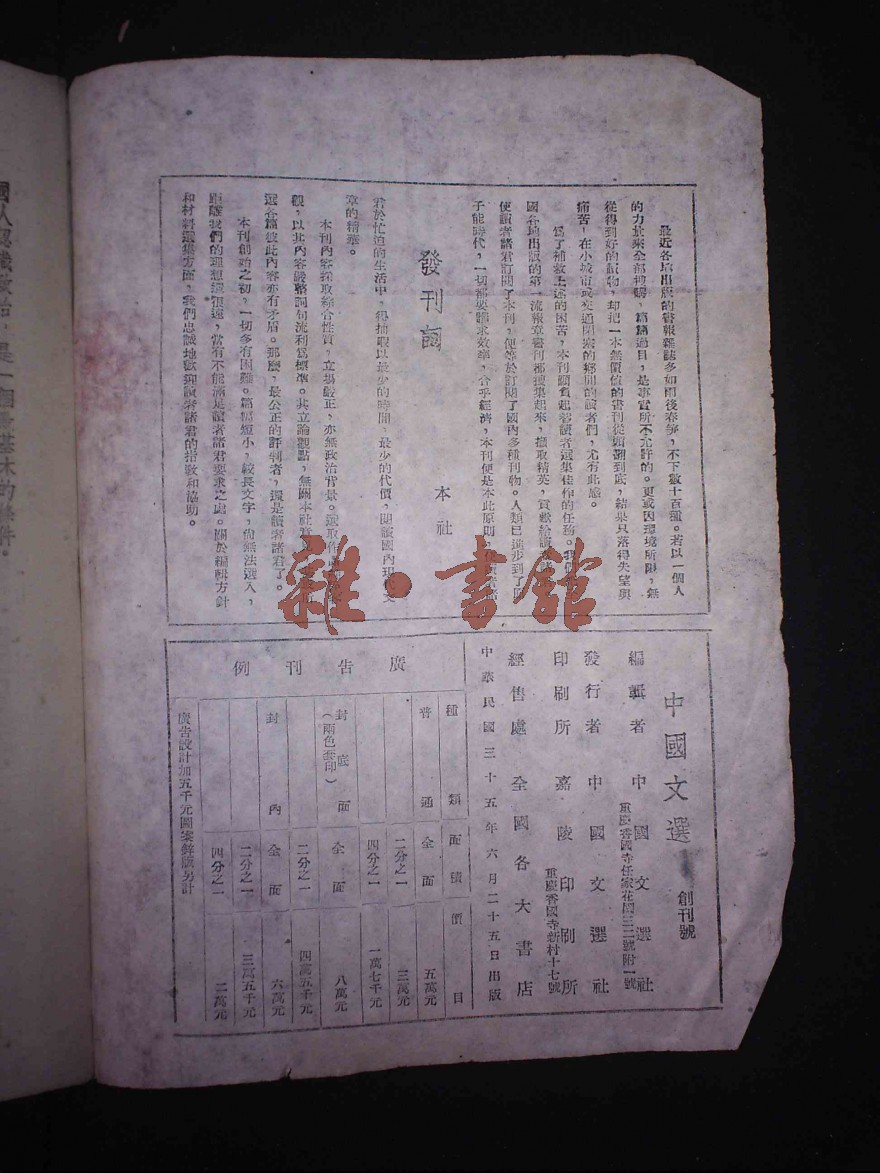 最近各地出版的書報雜誌多如雨後春筍，不下數十百種。若以一個人
的力量來全部搜購，篇篇過目，是事實所不允許的。更或因環境所限，無
從得到好的讀物，却把一本無價值的書刊從頭翻到底，結果只落得失望與
痛苦！在小城市或交通閉塞的鄉間的讀者們，尤有此感。
爲了補救上述的困苦，本刊願負起替讀者選集佳作的任務。我們
國各地出版的第一流報章書刊都搜集起來，擷取精英，貢獻給讀者諸
使讀者諸君訂閱了本刊，便等於訂閱了國內多種刊物。人類已進步到了原
子能時代，一切都要講求效率，合乎經濟，本刊便是本此原則
發刊詞
本社
君於忙迫的生活中，得抽暇以最少的時間，最少的代價，閱讀國內
章的精華。
本刊內容採取綜合性質，立場嚴正，亦無政治背景。選取作品
觀，以其內容嚴整詞句流利爲標準。其立論觀點，無關本社
選各篇彼此內容亦有矛盾。那麼，最公正的評判者，還是讀者諸君了。
本刊創始之初，一切多有困難。篇幅短小，較長文字，尚無法選入，
距離我們的理想還很遠，當有不能滿足讀者諸君要求之處。關於編輯方針
和材料選集方面，我們忠誠地歡迎讀者諸君的指教和協助。
雜·書館
中國文選 創刊號
編輯者 中國文選社
重慶香國寺任家花園三二號附一號
發行者 中國文選社
印刷所 嘉陵印刷所
重慶香國寺新村十七號
經售處 全國各大書店
中華民國三十五年六月二十五日出版
廣告刊例
種類 面積 價目
普通 全面 五萬元
二分之一 三萬元
四分之一 一萬七千元
封底面（兩色套印） 全面 八萬元
二分之一 四萬五千元
封內 全面 六萬元
二分之一 三萬五千元
四分之一 二萬元
廣告設計加五千元圖案鋅版另計
國人認識政治，是一個最基本的條件。